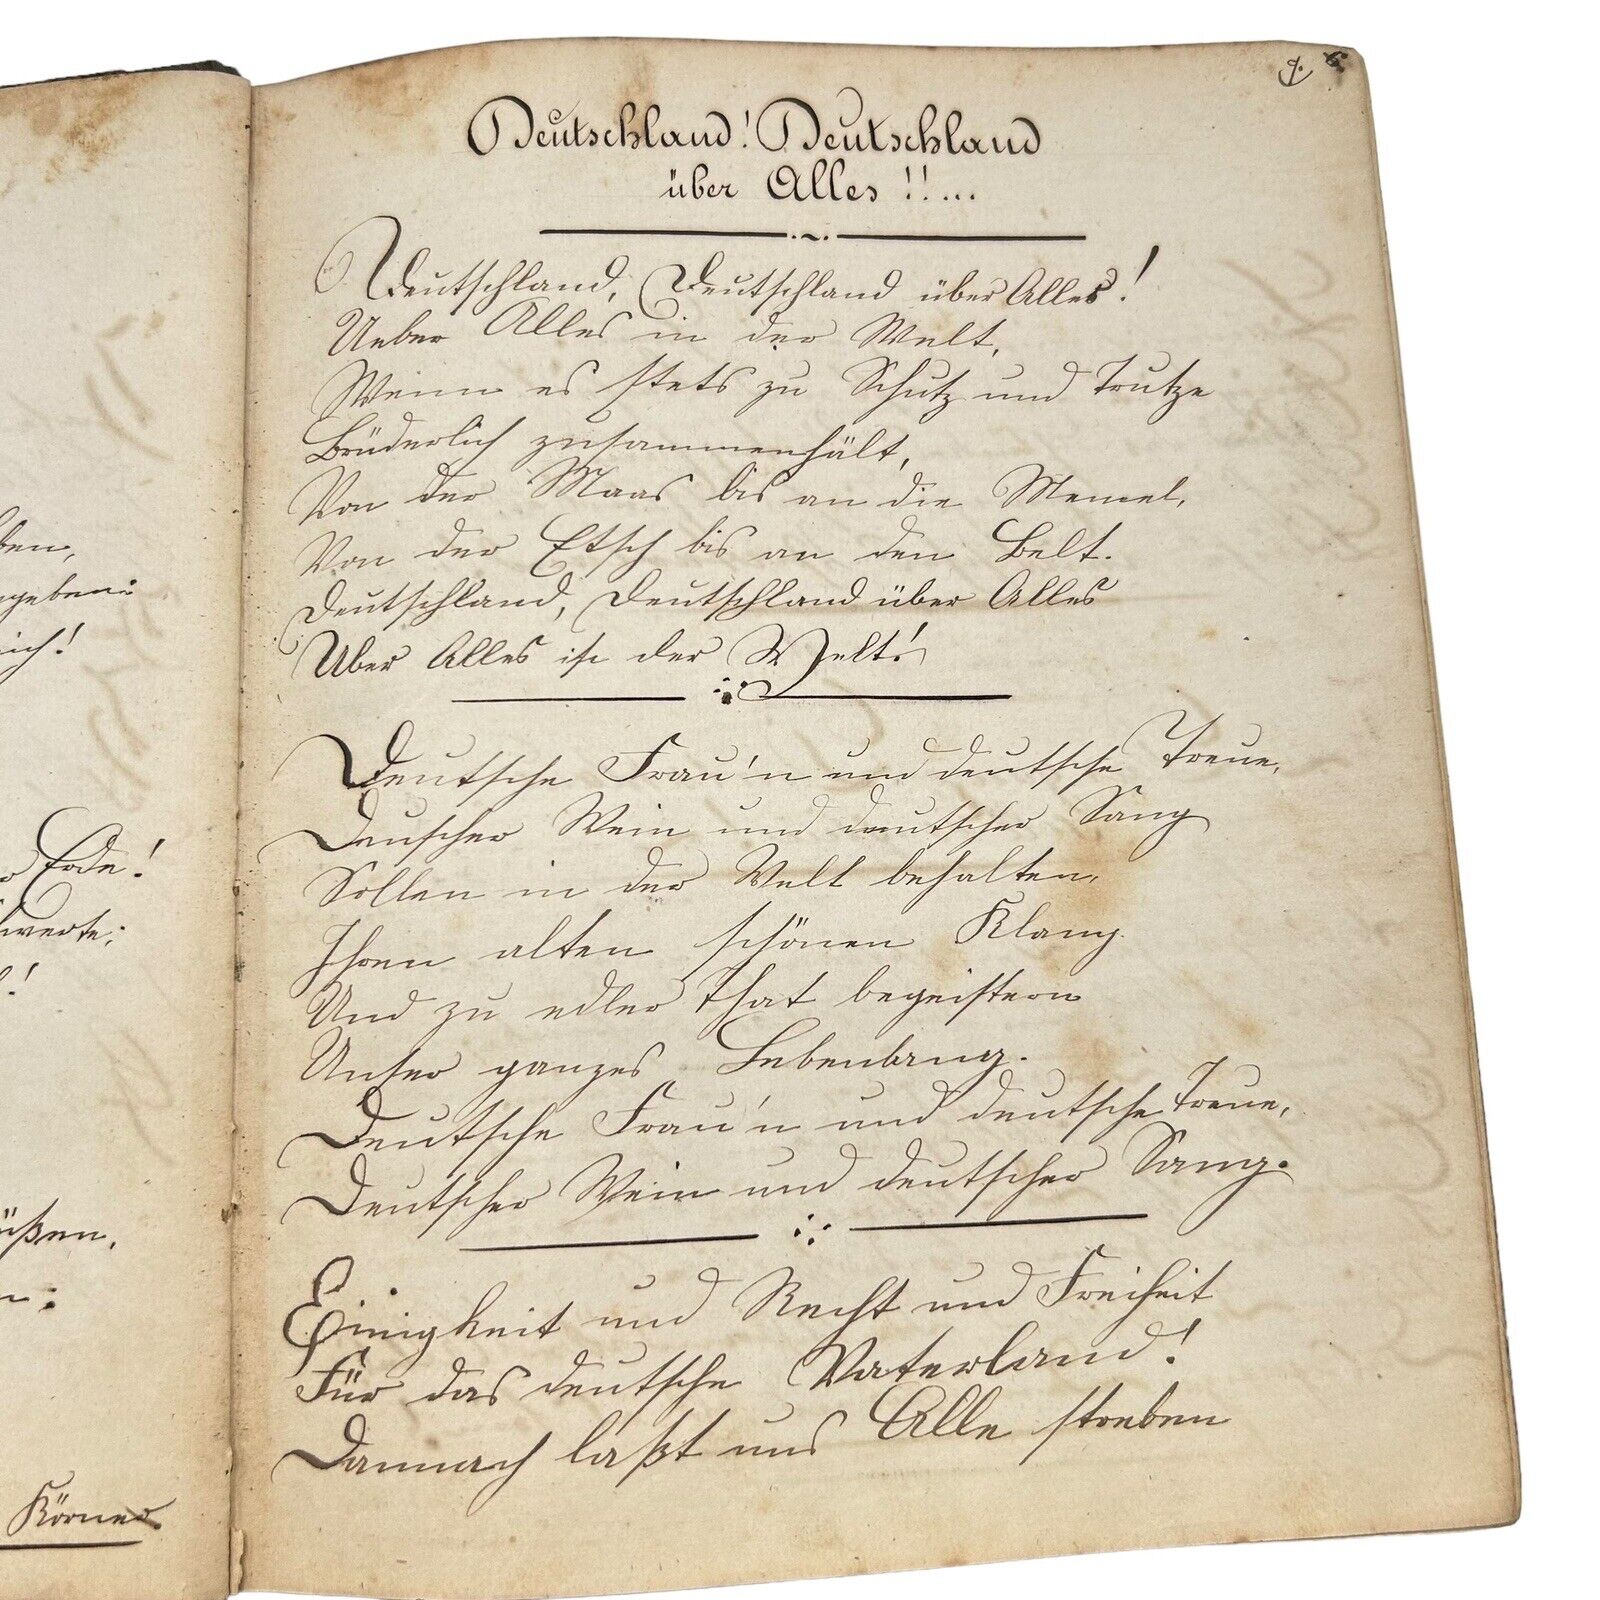 ben,
geben:
mich!
Erde!
werte;
!
üßen,
n:
Körner
7.
Deutschland! Deutschland
über Alles!!...
Deutschland, Deutschland über Alles!
Ueber Alles in der Welt,
Wenn es stets zu Schutz und Trutze
Brüderlich zusammenhält,
Von der Maas bis an die Memel,
Von der Etsch bis an den Belt.
Deutschland, Deutschland über Alles
Über Alles in der Welt!
Deutsche Frau'n und deutsche Treue,
Deuscher Wein und deutscher Sang
Sollen in der Welt behalten,
Ihren alten schönen Klang.
Und zu edler That begeistern
Unser ganzes
Deutsche Frau'n und deutsche Treue,
Deutscher Wein und deutscher Sang.
Einigkeit und Recht und Freiheit
Für das deutsche Vaterland!
Dannach laßt uns Alle streben